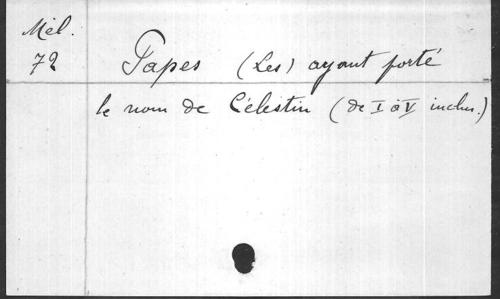 Mél.
72
Papes (Les) ayant porté
le nom de Célestin (de I à V inclus.)